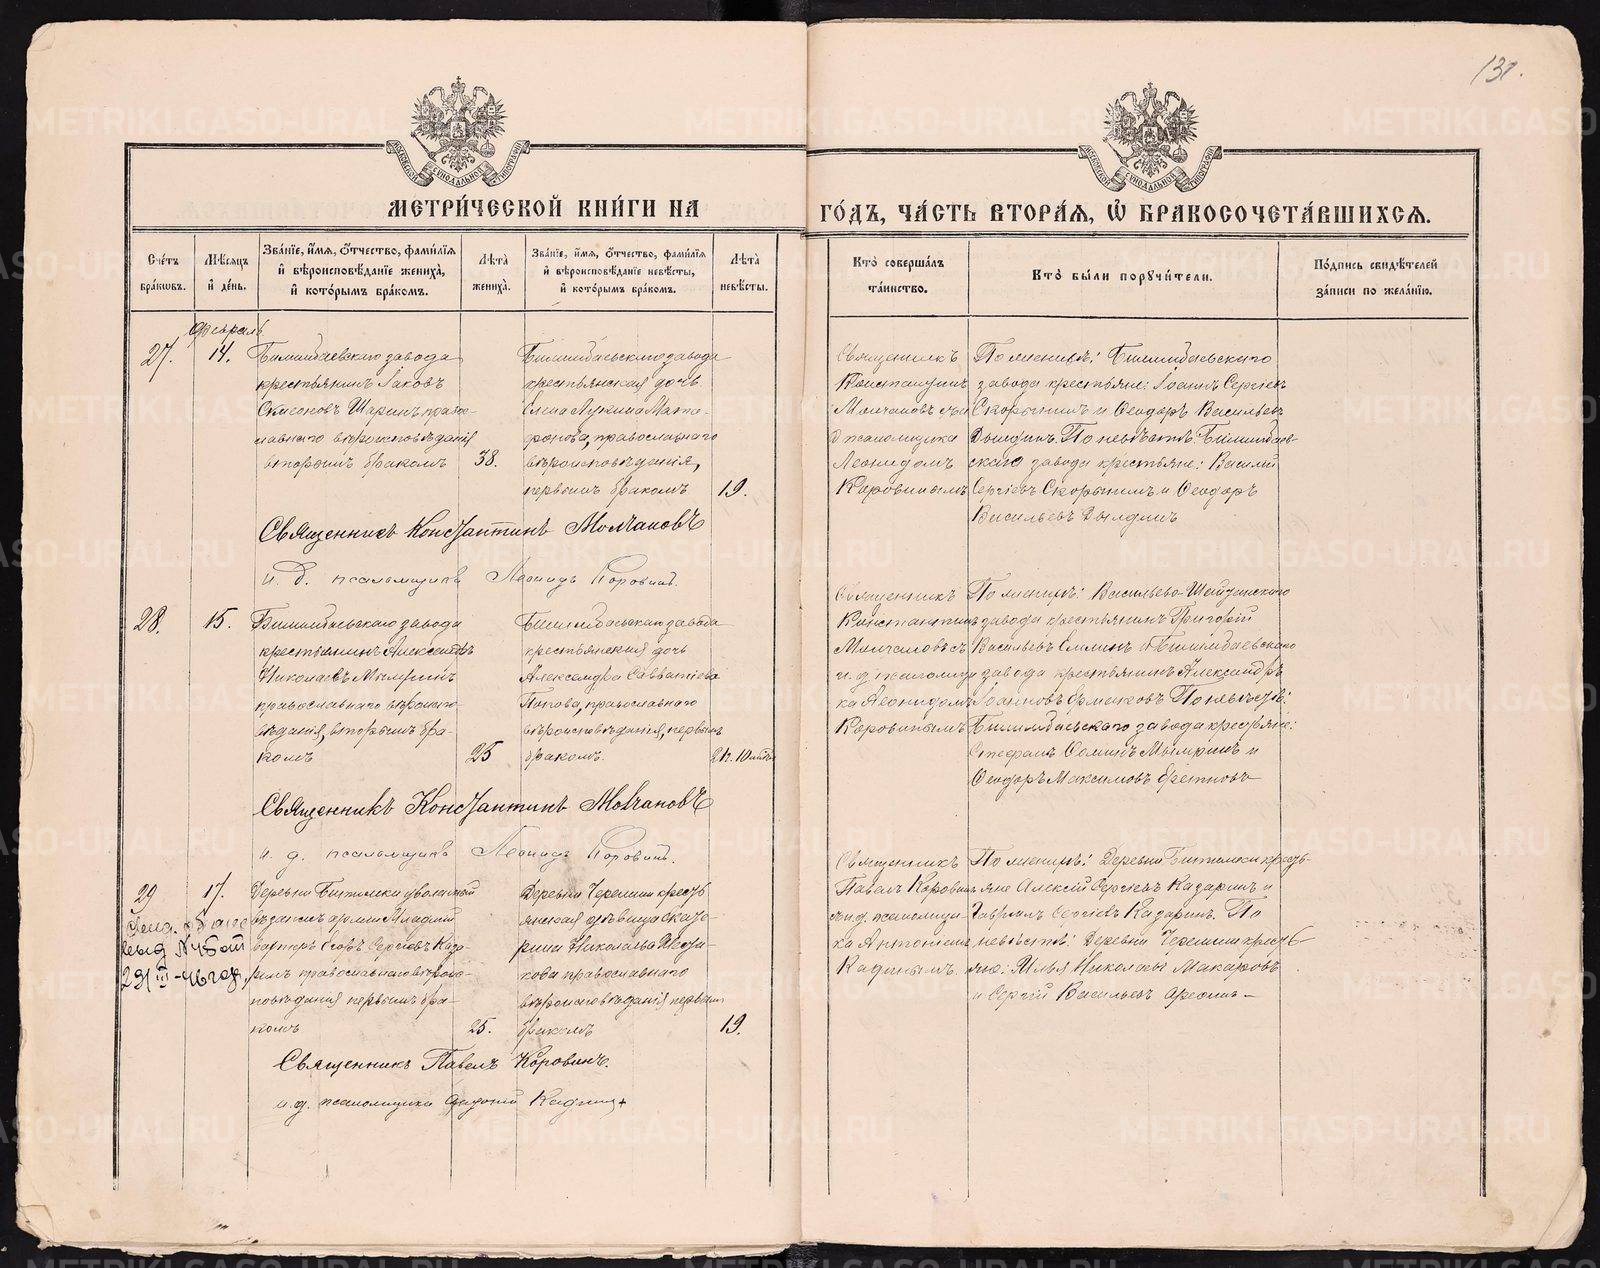 131.
МОСКОВСКОЙ СѴНОДАЛЬНОЙ ТИПОГРАФІИ
МОСКОВСКОЙ СѴНОДАЛЬНОЙ ТИПОГРАФІИ
МЕТРИ́ЧЕСКОЙ КНИ́ГИ НА
ГО́ДЪ, ЧА́СТЬ ВТОРА́Я, Ѡ҆ БРАКОСОЧЕТА́ВШИХСЯ.
Сче́тъ бра́кѡвъ.
Мѣ́сяцъ и҆ де́нь.
Зва́нїе, и҆́мя, ѻ҆́тчество, фами́лїя и҆ вѣроисповѣ́данїе жениха̀, и҆ кото́рымъ бра́комъ.
Лѣ́та жениха̀.
Зва́нїе, и҆́мя, ѻ҆́тчество, фами́лїя и҆ вѣроисповѣ́данїе невѣ́сты, и҆ кото́рымъ бра́комъ.
Лѣ́та невѣ́сты.
Кто̀ соверша́лъ та́инство.
Кто̀ бы́ли порꙋчи́тели.
По́дпись свидѣ́телей за́писи по жела́нїю.
Февраль
27.
14.
Билимбаевскаго завода
крестьянинъ Іаковъ
Симеоновъ Шаринъ правос-
лавнаго вѣроисповѣданія
вторымъ бракомъ
38.
Билимбаевскаго завода
крестьянская дочь
Елена Лукина
православнаго
вѣроисповѣданія,
первымъ бракомъ
19.
Священникъ
Константинъ
Молчановъ
псаломщика
Леонидомъ
Коровинымъ
По женихѣ: Билимбаевскаго
завода крестьяне: Іоаннъ Сергіевъ
Скорынинъ и Ѳеодоръ Васильевъ
Дылдинъ. По невѣстѣ: Билимбаев-
скаго завода крестьяне: Василій
Сергіевъ Скорынинъ и Ѳеодоръ
Васильевъ Дылдинъ
Священникъ Константинъ Молчановъ
и. д. псаломщика Леонидъ Коровинъ.
28.
15.
Билимбаевскаго завода
крестьянинъ Александръ
Николаевъ Мымринъ
православнаго вѣроиспо-
вѣданія, вторымъ бра-
комъ
25
Билимбаевскаго завода
крестьянская дочь
Александра Савватіева
Попова, православнаго
вѣроисповѣданія, первымъ
бракомъ.
Священникъ
Константинъ
Молчановъ съ
и. д. псаломщи-
ка Леонидомъ
Коровинымъ
По женихѣ: Васильево-Шайтанскаго
завода крестьянинъ Григорій
Васильевъ и Билимбаевскаго
завода крестьянинъ Александръ
Іоанновъ Ермаковъ По невѣстѣ:
Билимбаевскаго завода крестьяне:
Стефанъ Ѳоминъ Мымринъ и
Ѳеодоръ Максимовъ
Священникъ Константинъ Молчановъ
и. д. псаломщика Леонидъ Коровинъ.
29
17.
Деревни Битимки уволенный
въ запасъ арміи Младшій
Егоръ Сергіевъ Каза-
ринъ православнаго вѣроис-
повѣданія первымъ бра-
комъ
25.
Деревни Черемши кресть-
янская дѣвица Екате-
рина Николаева
православнаго
вѣроисповѣданія первымъ
бракомъ
19.
Священникъ
Павелъ Коровинъ
и. д. псаломщи-
ка Антоніемъ
По женихѣ: Деревни Битимки кресть-
яне Алексій Сергіевъ Казаринъ и
Гавріилъ Сергіевъ Казаринъ. По
невѣстѣ: Деревни Черемши кресть-
яне: Илья Николаевъ Макаровъ
и Сергій Васильевъ
Священникъ Павелъ Коровинъ.
и. д. псаломщика
METRIKI.GASO-URAL.RU